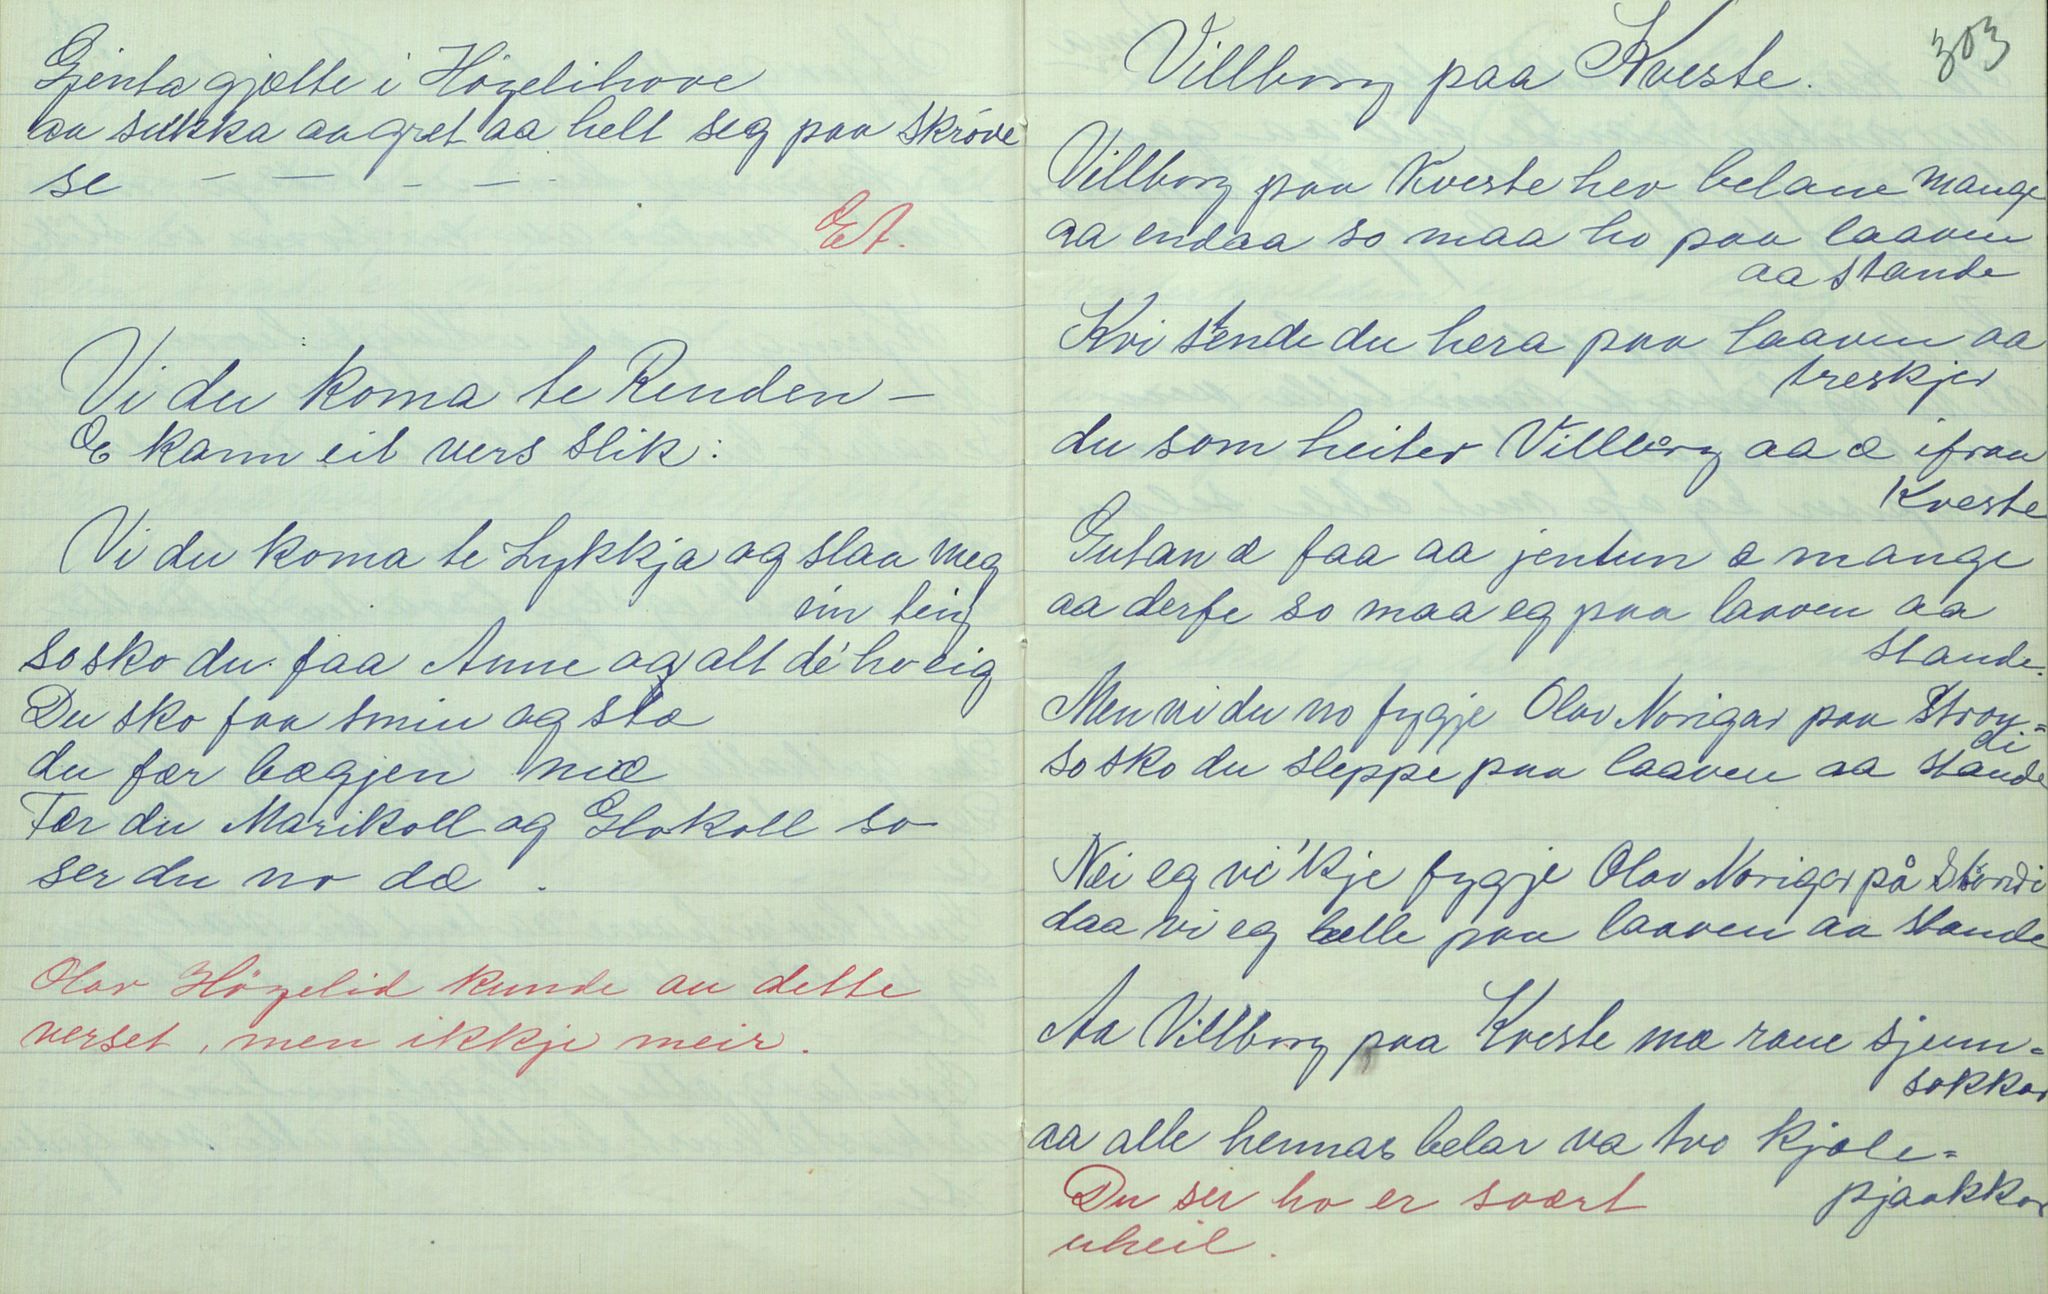 Gjenta gjætte i Högelihove
aa sukka aa græt aa helt seg paa skröve
se — — — —
Et.
Vi du koma te Renden —
E kann eit vers slik:
Vi du koma te Lykkja og slaa meg
ein teig
so sko du faa Anne og alt de' ho eig
Du sko faa smin og stæ
du fær bægjen mæ
Fær du Marikoll og Glokoll so
ser du no dæ.
Olav Högelid kunde au dette
verset, men ikkje meir.
303
Villborg paa Kveste.
Villborg paa Kveste hev belane mange
aa endaa so maa ho paa laaven
aa stande
Kvi stende du hera paa laaven aa
treskjer
du som heiter Villborg aa æ ifraa
Kveste
Gutan æ faa aa jentun æ mange
aa derfe so maa eg paa laaven aa
stande.
Men vi du no fygje Olav Norigar paa Stron=
di
so sko du sleppe paa laaven aa stande
Nei eg vi'kje fygje Olav Norigar på Strondi
daa vi eg helle paa laaven aa stande
Aa Villborg paa Kveste mæ raue sjeum=
sokkar
aa alle hennas belar va tvo kjole=
pjaakkar
Du ser ho er svært
uheil.